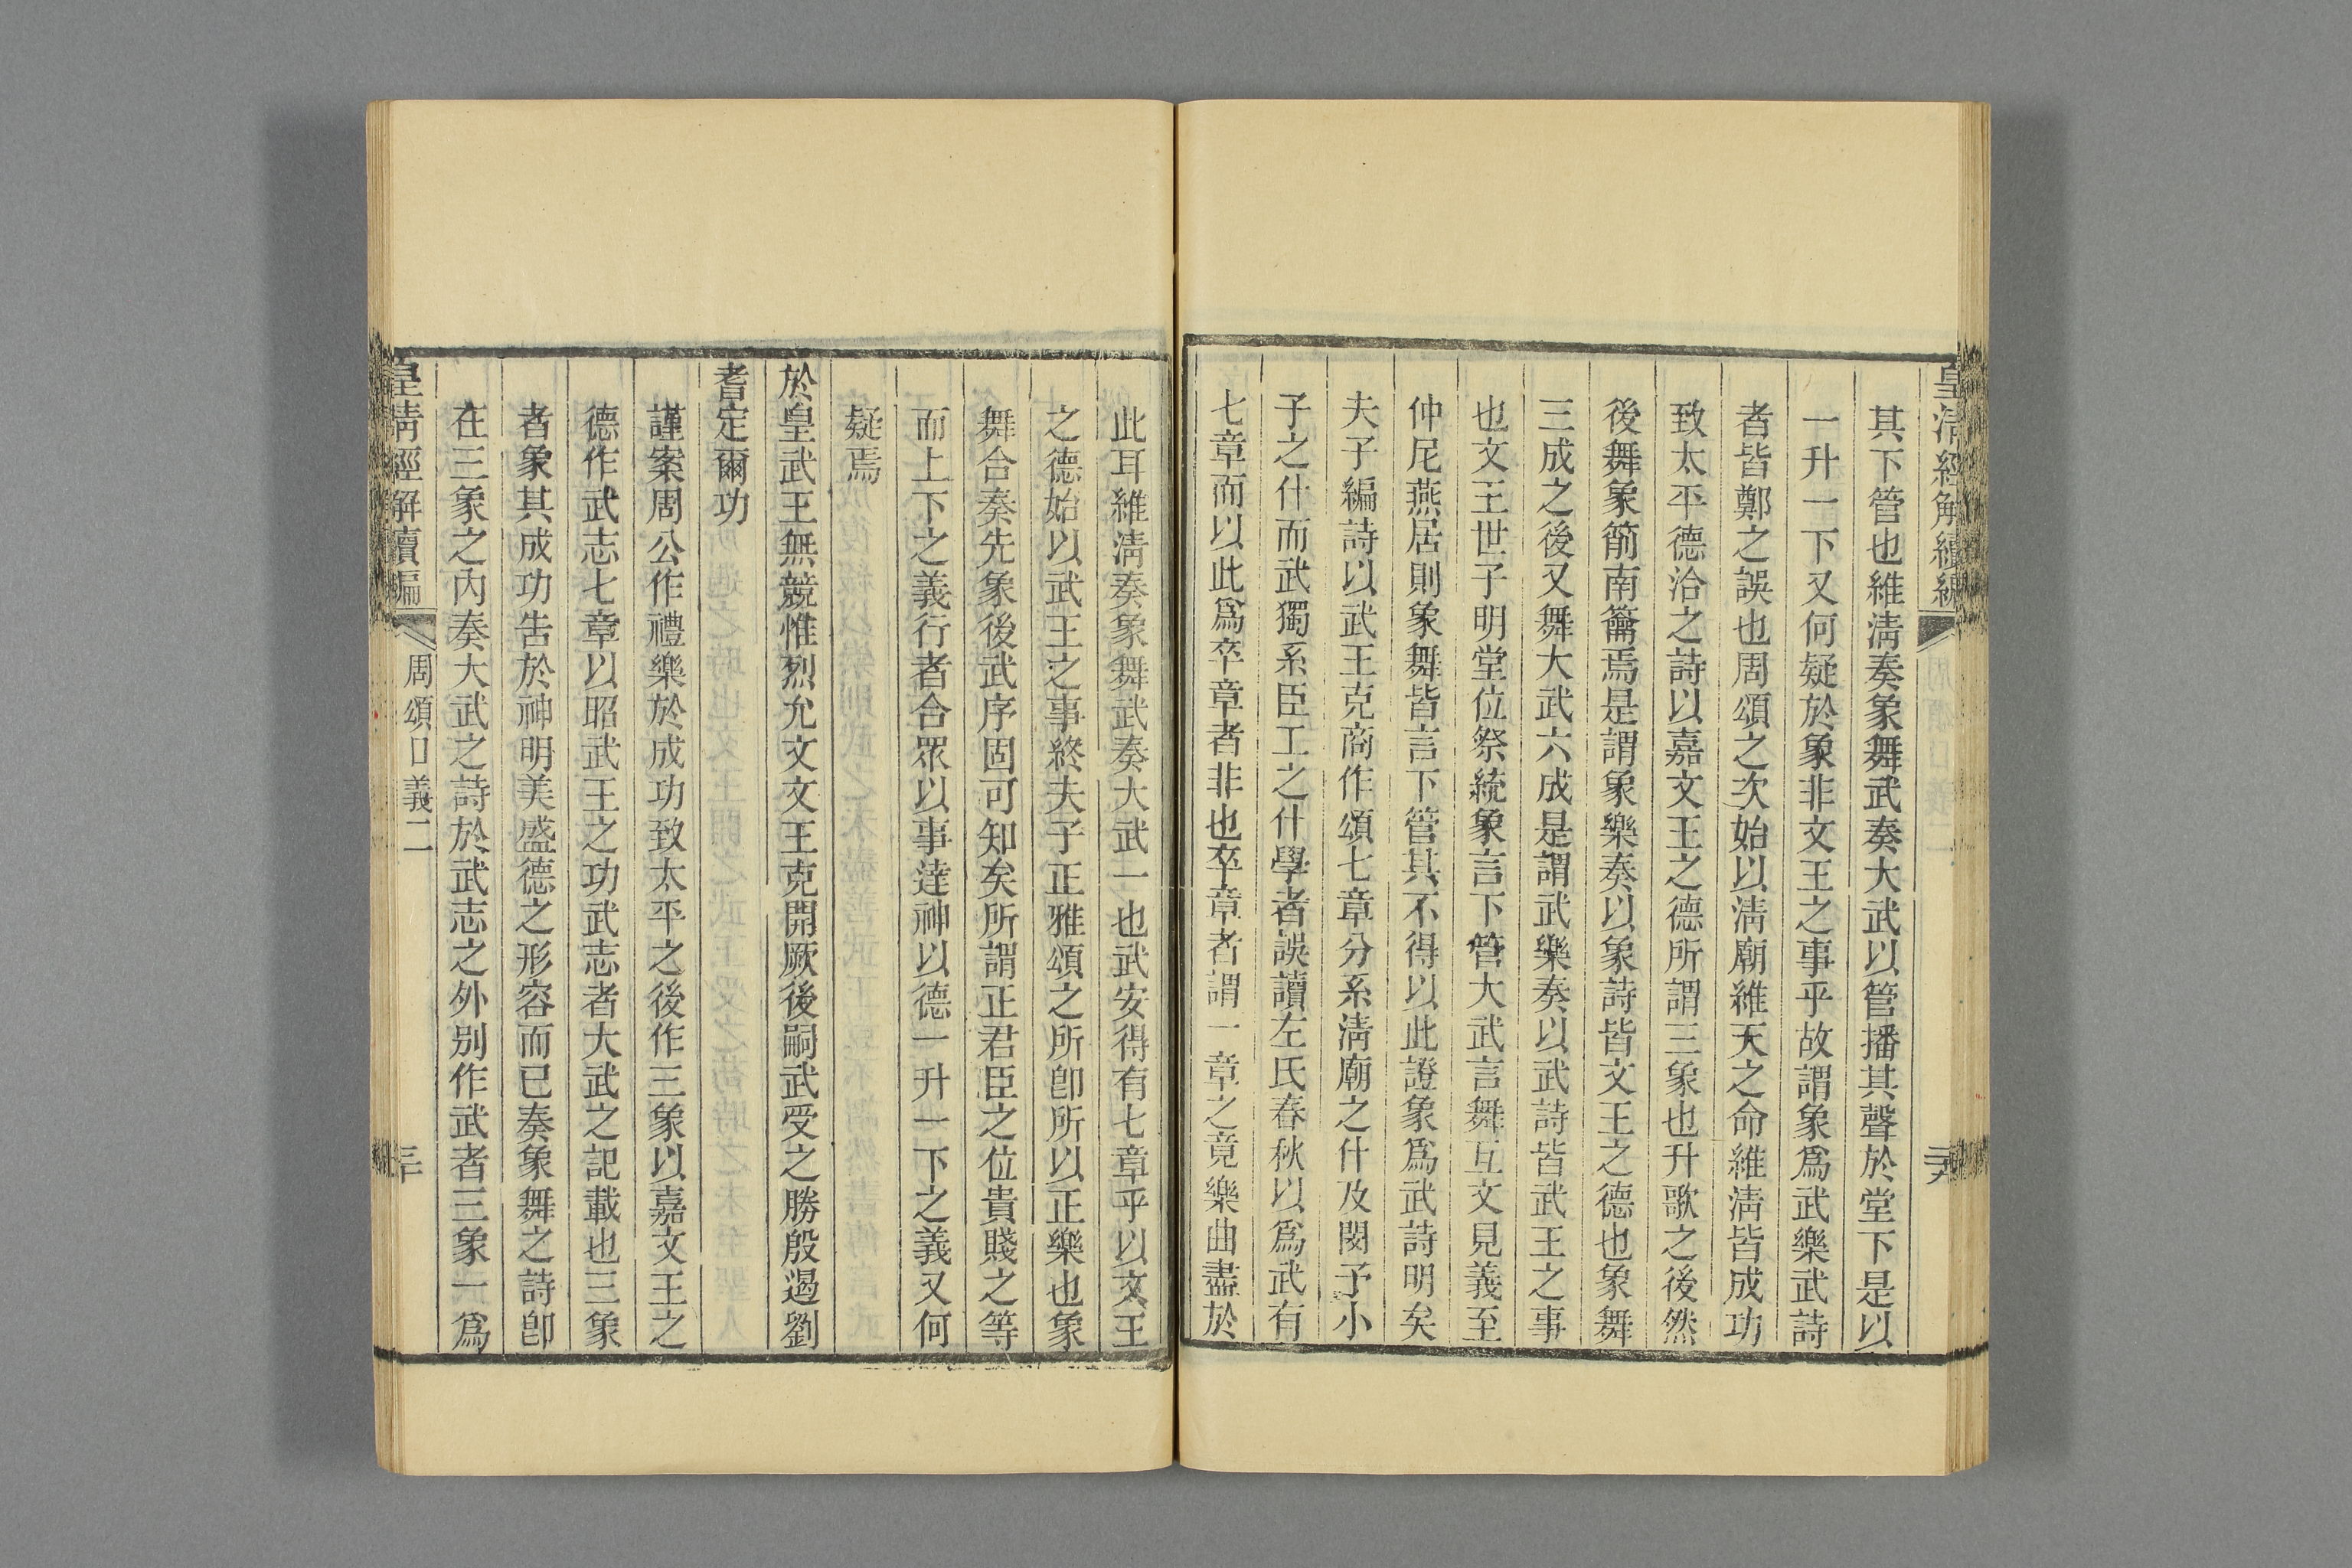 皇清經解續編
其下管也維淸奏象舞武奏大武以管播其聲於堂下是以
一升一下又何疑於象非文王之事乎故謂象爲武樂武詩
者皆鄭之誤也周頌之次始以淸廟維天之命維淸皆成功
致太平德洽之詩以嘉文王之德所謂三象也升歌之後然
後舞象箾南籥焉是謂象樂奏以象詩皆文王之德也象舞
三成之後又舞大武六成是謂武樂奏以武詩皆武王之事
也文王世子明堂位祭統象言下管大武言舞互文見義至
仲尼燕居則象舞皆言下管其不得以此證象爲武詩明矣
夫子編詩以武王克商作頌七章分系淸廟之什及閔予小
子之什而武獨系臣工之什學者誤讀左氏春秋以爲武有
七章而以此爲卒章者非也卒章者謂一章之竟樂曲盡於
此耳維淸奏象舞武奏大武一也武安得有七章乎以文王
之德始以武王之事終夫子正雅頌之所卽所以正樂也象
舞合奏先象後武序固可知矣所謂正君臣之位貴賤之等
而上下之義行者合眾以事達神以德一升一下之義又何
疑焉
於皇武王無競惟烈允文文王克開厥後嗣武受之勝殷遏劉
耆定爾功
謹案周公作禮樂於成功致太平之後作三象以嘉文王之
德作武志七章以昭武王之功武志者大武之記載也三象
者象其成功告於神明美盛德之形容而已奏象舞之詩卽
在三象之內奏大武之詩於武志之外別作武者三象一爲
皇淸經解續編 周頌口義二 三十